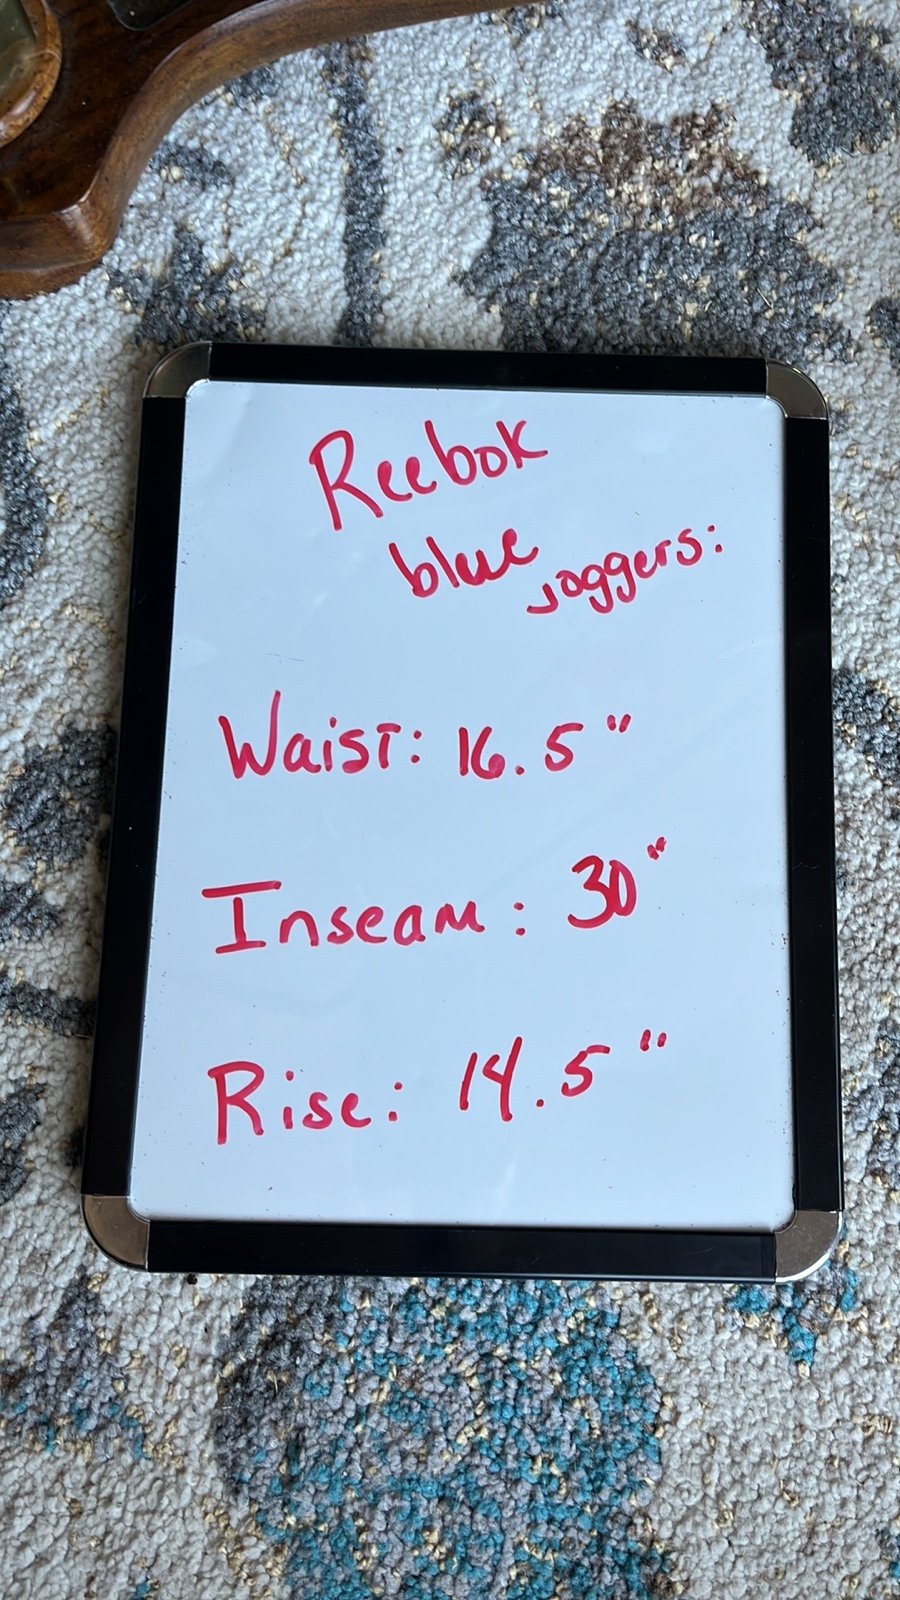 Reebok
blue joggers:
Waist: 16.5"
Inseam: 30"
Rise: 14.5"